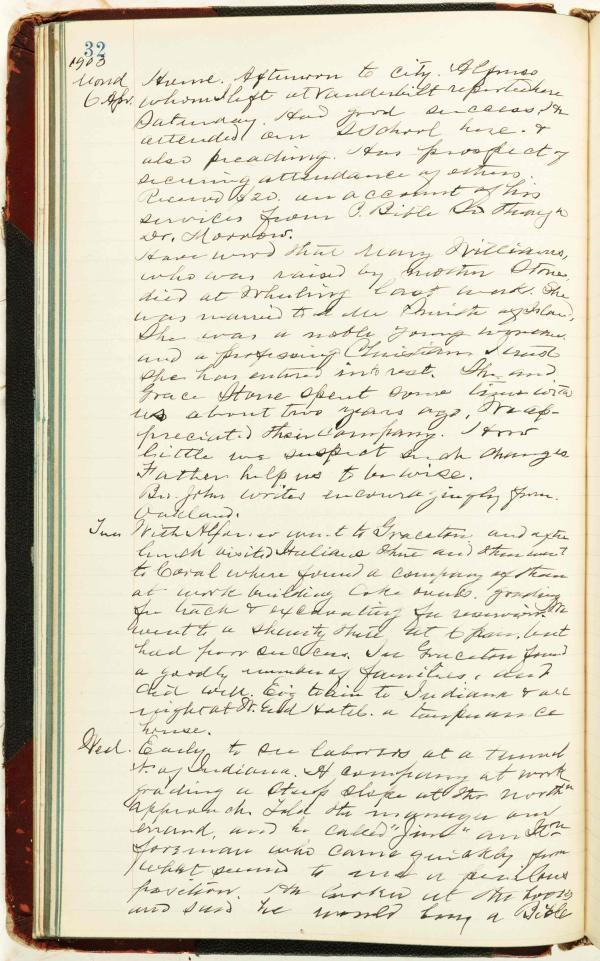 32
1903
Mond Home. Afternoon to city. Alfonso
6 Apr. whom I left at Vanderbilt reported here
Saturday. Had good success, He
attended our S School here. &
also preaching. Has prospect of
securing attendance of others.
Received $20. on account of his
services from P. Bible So through
Dr. Morrow.
Have word that Mary Williams,
who was raised by mother Stone
died at Wheeling last week. She
was married to a Mr
She was a noble young woman
and a professing Christian I trust
she has entered into rest. She and
Grace Stone spent some time with
us about two years ago, We ap-
preciated their company. How
little we suspect such changes
Father help us to be wise.
Bro. John writes encouragingly from
Oakland.
Tues With Alfonso went to Graceton and after
lunch visited Italians there and then went
to Coral where found a company of them
at work building Coke ovens. grading
for track & excavating for reservoir. We
went to a shanty there at 6 p.m. but
had poor success. In Graceton found
a goodly number of families, and
did well. Evg train to Indiana & all
night at W. End Hotel. a temperance
house.
Wed. Early to see laborers at a tunnel
N. of Indiana. A company at work
grading a steep slope at the north
approach. Told the manager our
errand, and he called "Jim" an Itn
foreman who came quickly from
what seemed to me a perilous
position. He looked at the books
and said he would buy a Bible